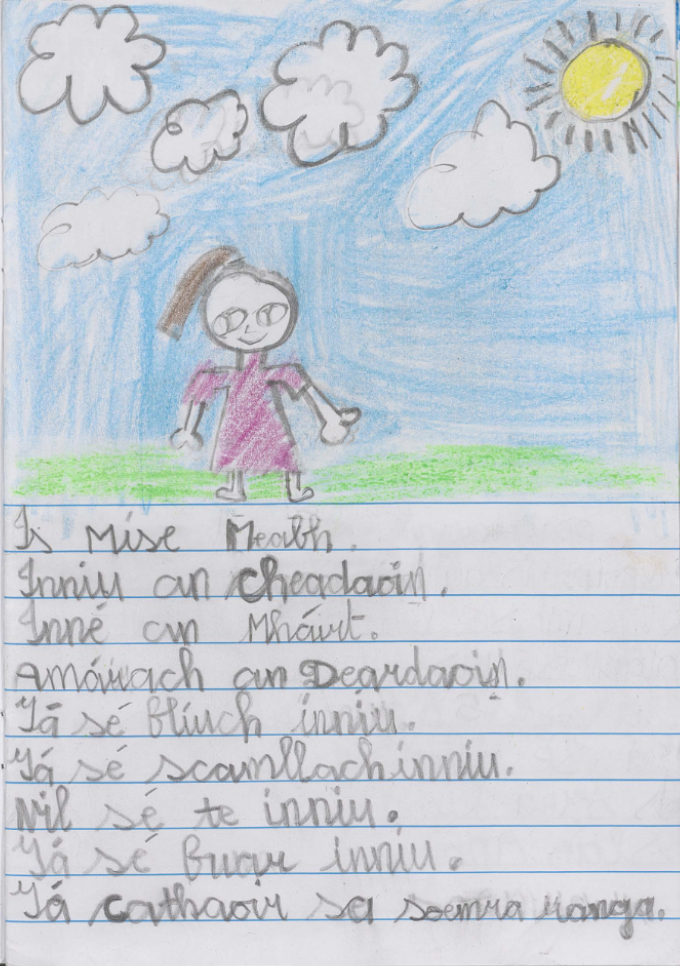 Is mise Meabh.
Inniu an Cheadaoin.
Inné an Mháirt.
Amárach an Deardaoin.
Tá sé fliuch inniu.
Tá sé scamllach inniu.
Níl sé te inniu.
Tá sé fuar inniu.
Tá cathaoir sa soemra ranga.